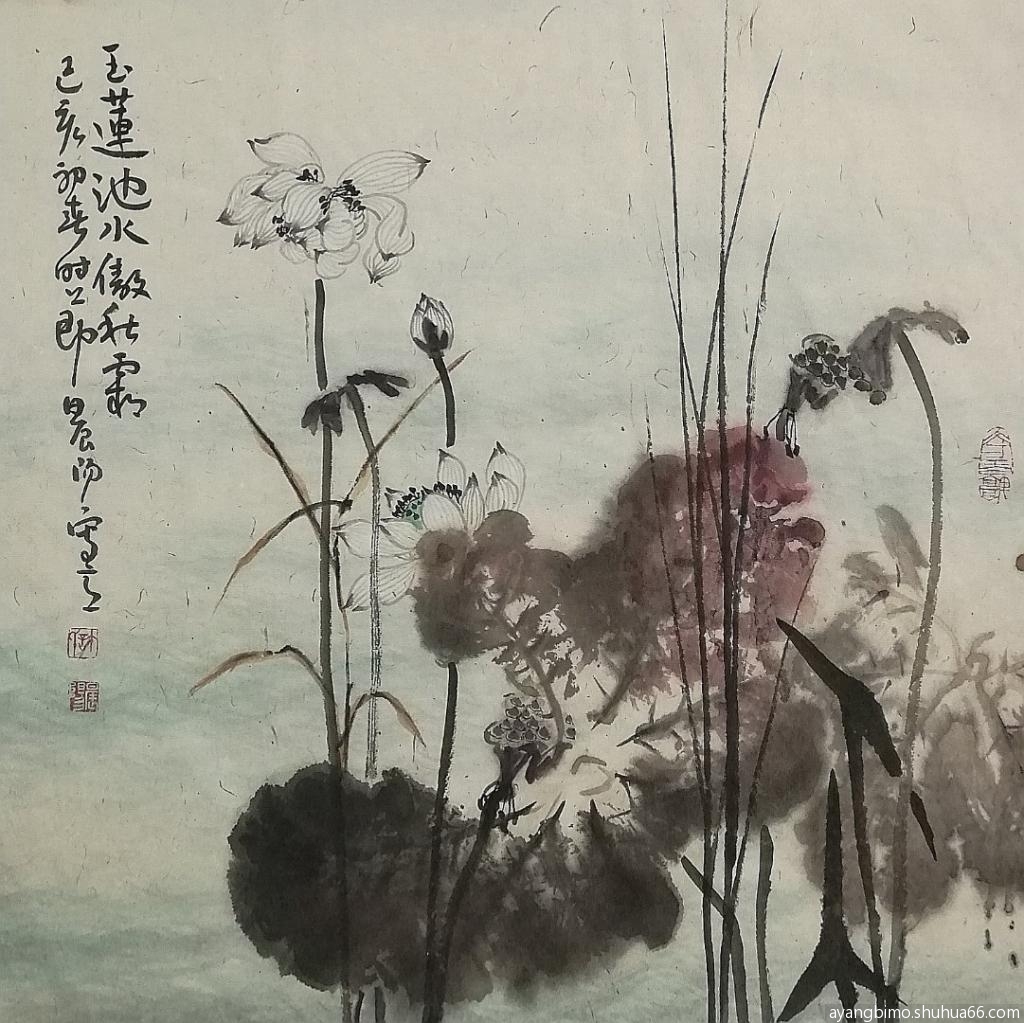 玉蓮池水傲秋霜
己亥初春时节晨阳寫之
ayangbimo.shuhua66.com